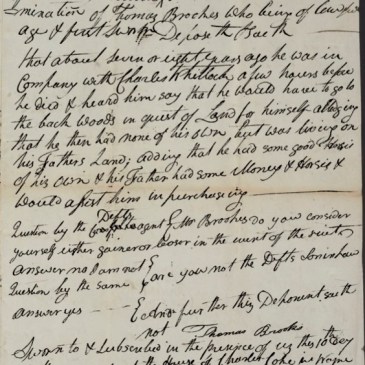 Examination of Thomas Brookes who being of lawfull
age & first Sworn Deposeth & saith
that about seven or eight years ago he was in
Company with Charles Whitlock a few hours before
he died & heard him say that he would have to go to
the back woods in quest of Land for himself alledging
that he then had none of his own, but was living on
his Fathers Land; adding that he had some good Horses
of his own & his Father had some Money & Horses &
would assist him in purchasing
Question by the Defts agent } Mr Brookes do you consider
yourself either gainer or looser in the event of the suit
Answer no I am not }
Question by the same } are you not the Defts Soninlaw
Answer yes — } and further this Deponent saith
not Thomas Brooks
Sworn to & Subscribed in the presence of us this 10th day
at the House of Charles